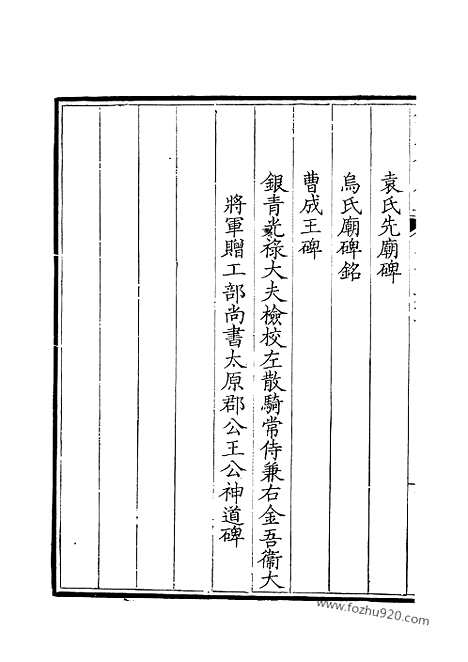 袁氏先廟碑
烏氏廟碑銘
曹成王碑
銀青光祿大夫檢校左散騎常侍兼右金吾衛大
將軍贈工部尚書太原郡公王公神道碑
www.fozhu920.com